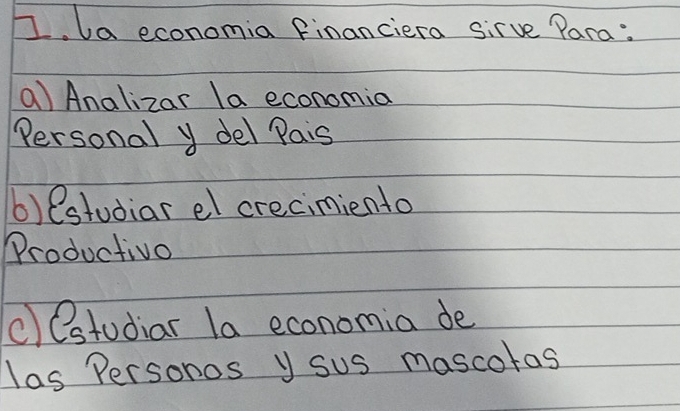 1. La economia financiera sirve Para:
a) Analizar la economia
Personal y del Pais
b) estudiar el crecimiento
Productivo
c) estudiar la economia de
las Personas y sus mascotas